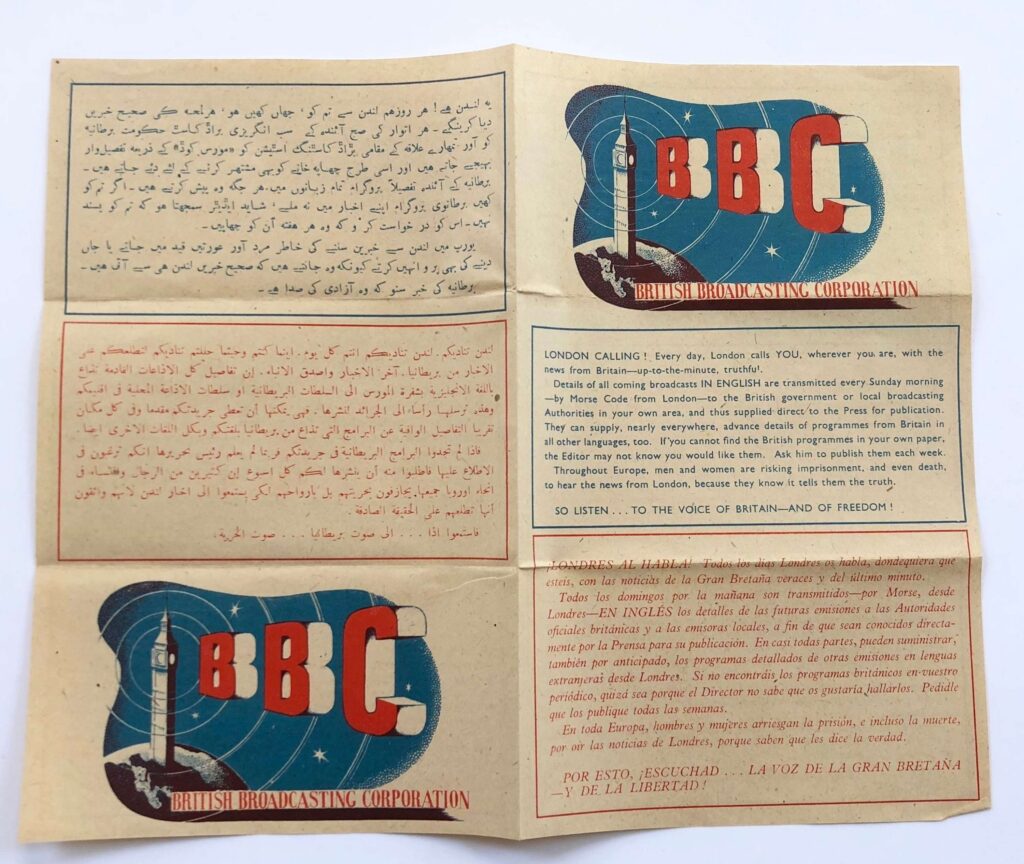 یہ لندن ہے! ہر روزہم لندن سے تم کو، جہاں کہیں ہو، ہرلمحہ کی صحیح خبریں
دیا کرینگے - ہر اتوار کی صبح آئندہ کے سب انگریزی براڈ کاسٹ حکومت برطانیہ
کو اور تمہارے علاقہ کے مقامی براڈ کاسٹنگ اسٹیشن کو «مورس کوڈ» کے ذریعہ تفصیل‌وار
بھیجے جاتے ہیں اور اسی طرح چھاپہ خانے کوبھی مشتہر کرنے کے لئے دئے جاتے ہیں -
برطانیہ کے آئندہ تفصیلاً پروگرام تمام زبانوں میں، ہر جگہ وہ پیش کرتے ہیں - اگر تم کو
کہیں برطانوی پروگرام اپنے اخبار میں نہ ملے، شاید ایڈیٹر سمجھتا ہو کہ تم کو پسند
نہیں - اس کو در خواست کر و کہ وہ ہر ہفتہ آن کو چھاپیں -
یورپ میں لندن سے خبرین سننے کی خاطر مرد آور عورتیں قید میں جانے یا جان
دینے کی بھی پر و انہیں کرتے کیونکہ وہ جانتے ہیں کہ صحیح خبریں لندن ہی سے آتی ہیں -
برطانیہ کی خبر سنو کہ وہ آزادی کی صدا ہے -
لندن تناديكم. لندن تناديكم انتم كل يوم. اينما كنتم وحيثما حللتم تناديكم لتطلعكم على
الاخبار من بريطانيا. آخر الاخبار واصدق الانباء. إن تفاصيل كل الاذاعات القادمة تذاع
باللغة الانجليزية بشفرة المورس الى السلطات البريطانية او سلطات الاذاعة المحلية في اقليمكم
وهذه ترسلها رأساً الى الجرائد لنشرها. فهي يمكنها أن تعطي جريدتكم مقدما وفي كل مكان
تقريبا التفاصيل الوافية عن البرامج التي تذاع من بريطانيا بلغتكم وبكل اللغات الاخرى ايضا.
فاذا لم تجدوا البرامج البريطانية في جريدتكم فربما لم يعلم رئيس تحريرها انكم ترغبون في
الاطلاع عليها فاطلبوا منه أن ينشرها لكم كل اسبوع إن كثيرين من الرجال والنساء في
انحاء اوروبا جميعها يجازفون بحريتهم بل بارواحهم لكي يستمعوا الى اخبار لندن لانهم واثقون
أنها تطلعهم على الحقيقة الصادقة.
فاستمعوا اذا . . . الى صوت بريطانيا . . . صوت الحرية.
BBC
BRITISH BROADCASTING CORPORATION
BBC
BRITISH BROADCASTING CORPORATION
LONDON CALLING! Every day, London calls YOU, wherever you are, with the
news from Britain—up-to-the-minute, truthful.
Details of all coming broadcasts IN ENGLISH are transmitted every Sunday morning
—by Morse Code from London—to the British government or local broadcasting
Authorities in your own area, and thus supplied direct to the Press for publication.
They can supply, nearly everywhere, advance details of programmes from Britain in
all other languages, too. If you cannot find the British programmes in your own paper,
the Editor may not know you would like them. Ask him to publish them each week.
Throughout Europe, men and women are risking imprisonment, and even death,
to hear the news from London, because they know it tells them the truth.
SO LISTEN . . . TO THE VOICE OF BRITAIN—AND OF FREEDOM!
¡LONDRES AL HABLA! Todos los días Londres os habla, dondequiera que
esteis, con las noticias de la Gran Bretaña veraces y del último minuto.
Todos los domingos por la mañana son transmitidos—por Morse, desde
Londres—EN INGLÉS los detalles de las futuras emisiones a las Autoridades
oficiales británicas y a las emisoras locales, a fin de que sean conocidos directa-
mente por la Prensa para su publicación. En casi todas partes, pueden suministrar,
también por anticipado, los programas detallados de otras emisiones en lenguas
extranjeras desde Londres. Si no encontráis los programas británicos en vuestro
periódico, quizá sea porque el Director no sabe que os gustaría hallarlos. Pedidle
que los publique todas las semanas.
En toda Europa, hombres y mujeres arriesgan la prisión, e incluso la muerte,
por oir las noticias de Londres, porque saben que les dice la verdad.
POR ESTO, ¡ESCUCHAD . . . LA VOZ DE LA GRAN BRETAÑA
—Y DE LA LIBERTAD!